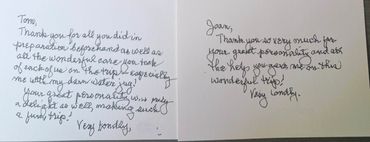 Tom,
Thank you for all you did in
preparation beforehand as well as
all the wonderful care you took
of each of us on the trip - especially
me with my dear sister Joy!
Your great personality was truly
a delight as well, making such
a fun trip!
Very fondly,
Joan,
Thank you so very much for
your great personality and all
the help you gave me on this
wonderful trip!
Very fondly,